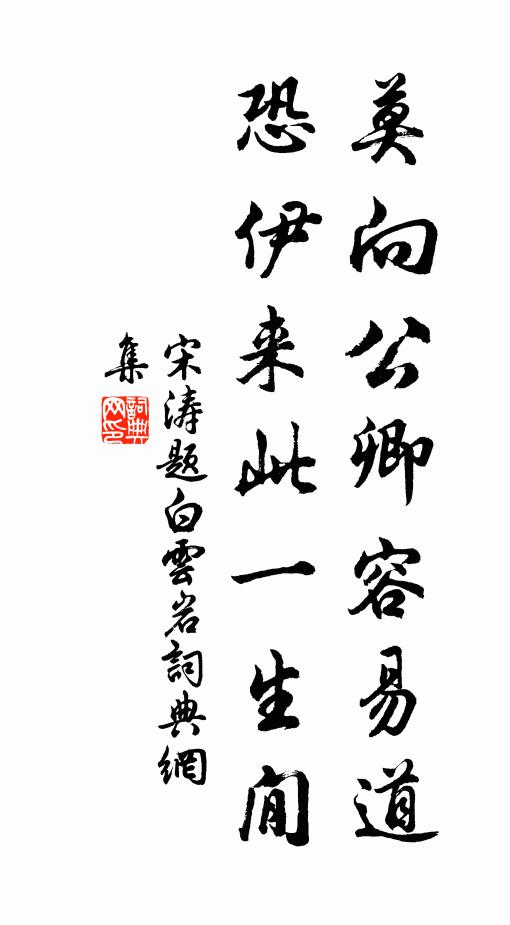 莫向公卿容易道
恐伊来此一生閒
宋涛题白雲岩詞典網
集
詞典网印